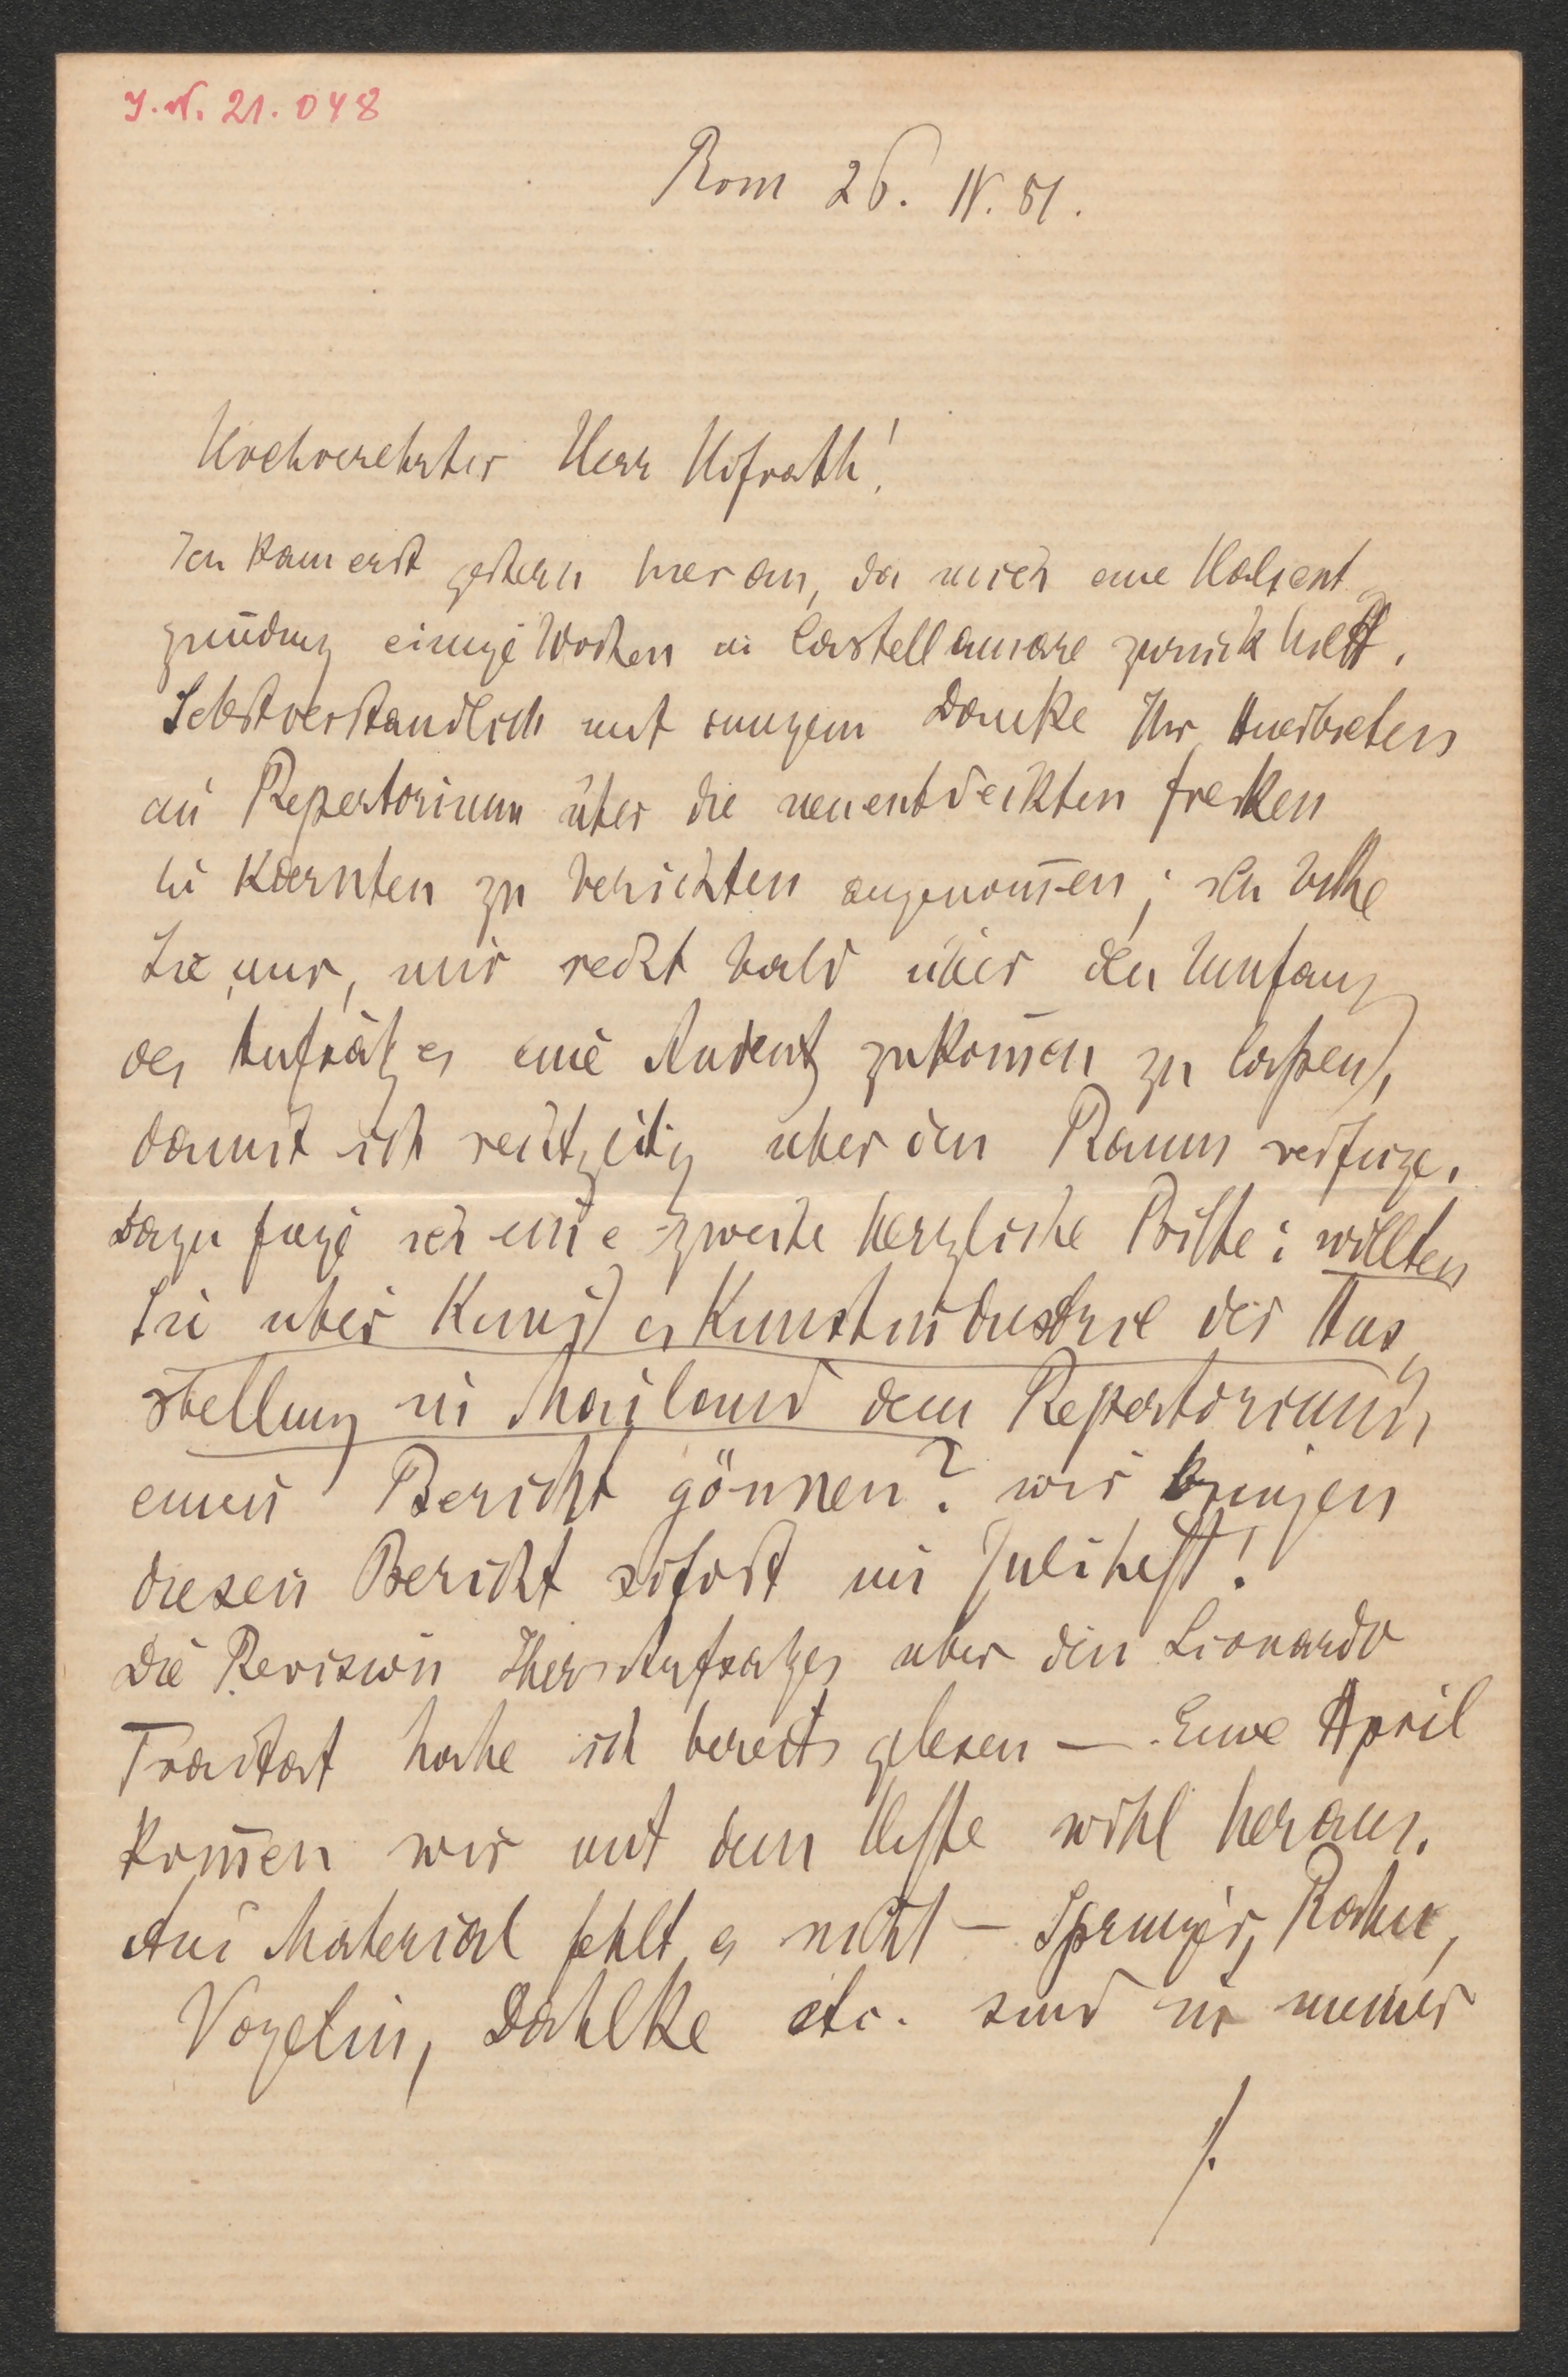 J. N. 21.048
Rom 26. IV. 81.
Hochverehrter Herr Hofrath!
Ich kam erst gestern hier an, da mich eine Halsent
zündung einige Wochen in Castellamare zurück hielt.
Selbstverständlich mit innigem Danke Ihr Anerbieten
im Repertorium über die neuentdeckten Fresken
in Kaernten zu berichten angenom̅en; ich bitte
Sie nur, mir recht bald über den Umfang
des Aufsatzes eine Andeutg zukom̅en zu lassen,
damit ich rechtzeitig über den Raum verfüge.
Dazu füge ich eine zweite herzliche Bitte: wollten
Sie über Kunst u Kunstindustrie der Aus
stellung in Mailand dem Repertorium
einen Bericht gönnen? wir bringen
diesen Bericht sofort im Juliheft!
Die Revision Ihres Aufsatzes über den Lionardo
Traktat habe ich bereits gelesen – Ende April
kom̅en wir mit dem Hefte wohl heraus.
An Material fehlt es nicht – Springer, Rahn,
Vögelin, Dahlke etc. sind in meiner
./.